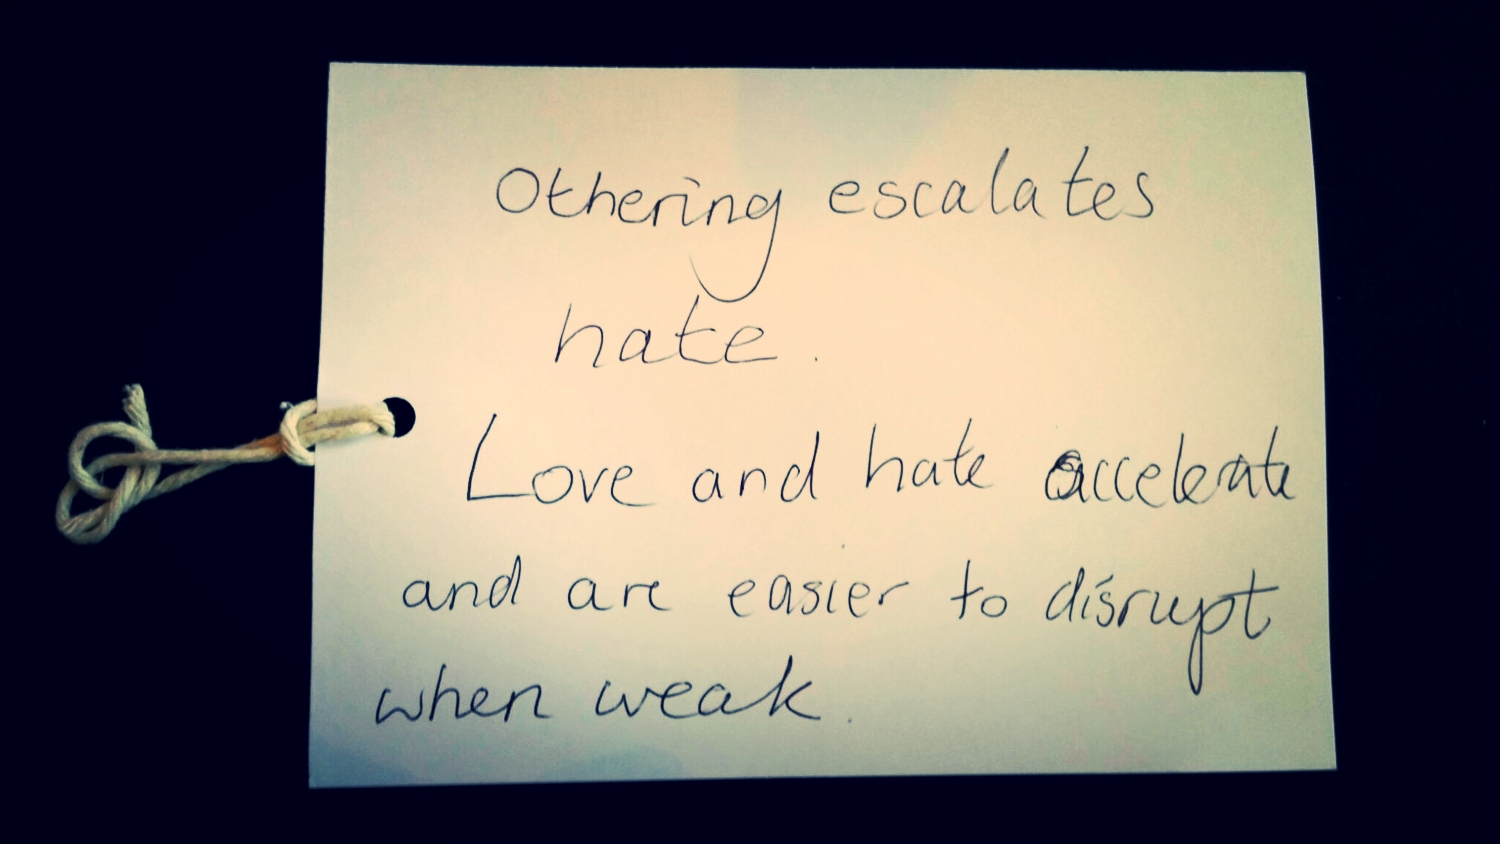 Othering escalates
hate.
Love and hate accelerate
and are easier to disrupt
when weak.